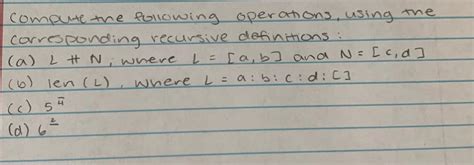 Compute the following operations, using the
corresponding recursive definitions:
(a) L # N, where L = [a,b] and N = [c,d]
(b) len (L), where L = a:b:c:d:[]
(c) 5^4̅
(d) 6^2̲